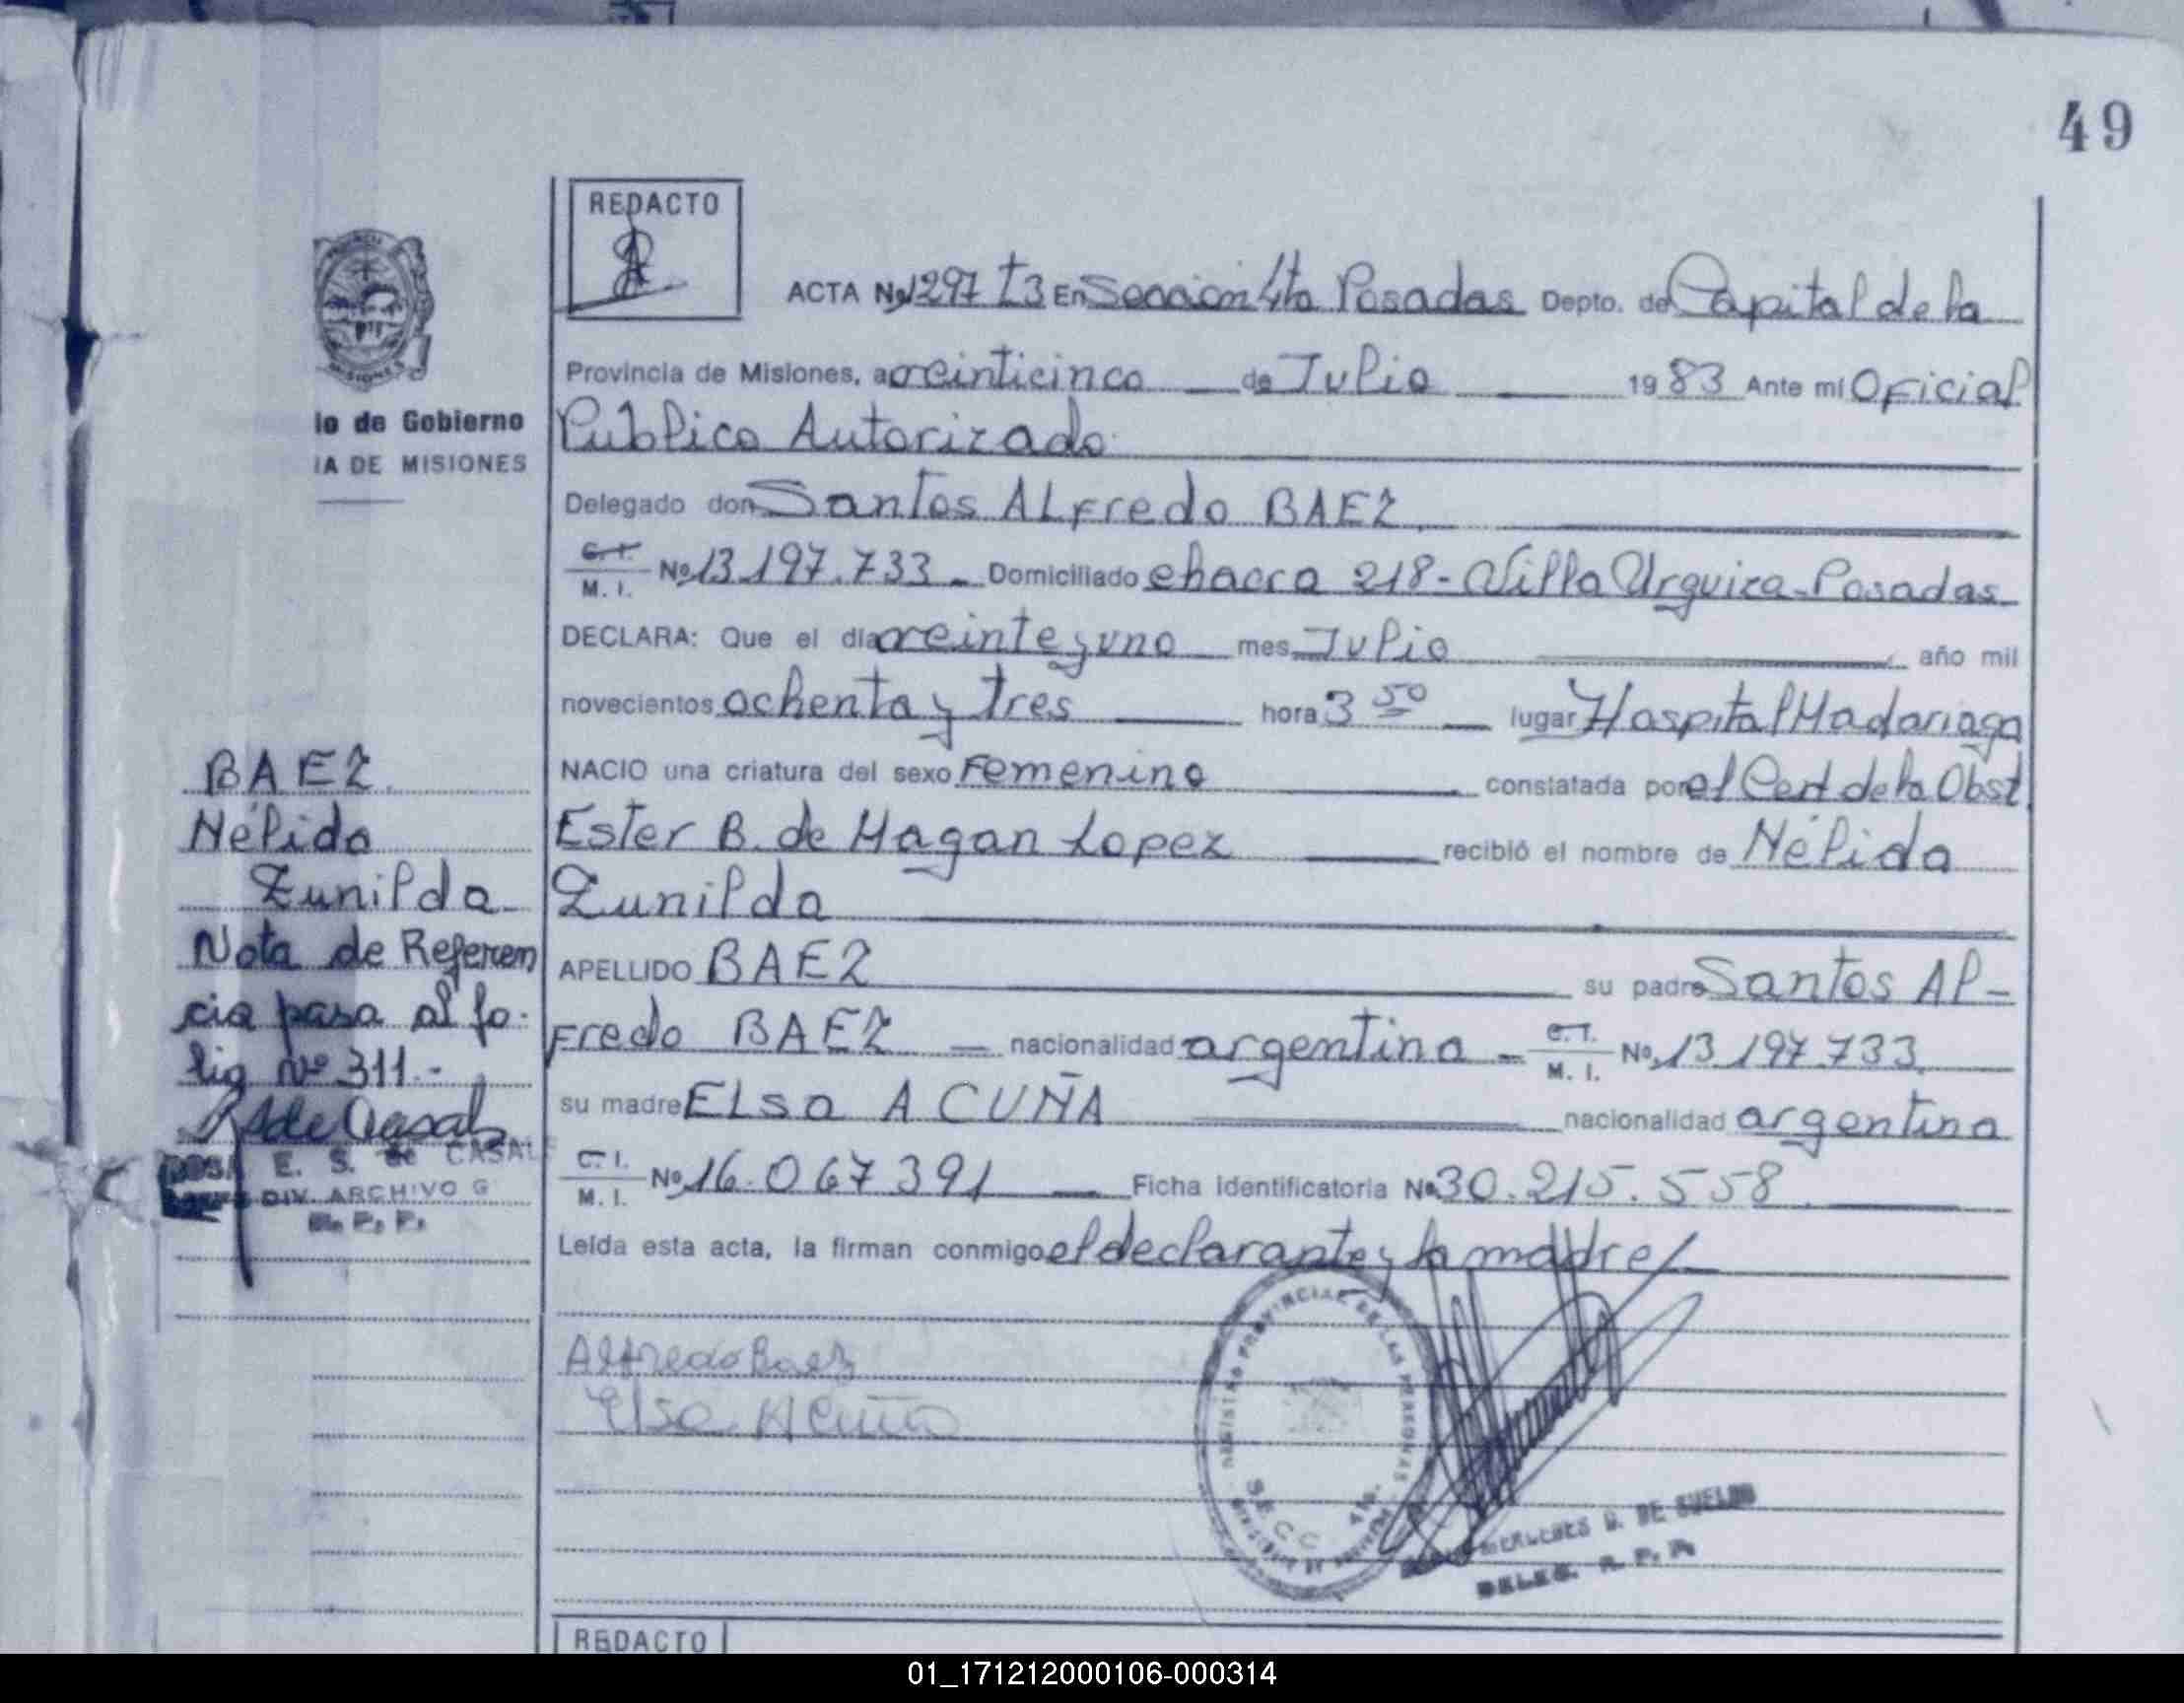 49
REDACTO
ACTA Nº 1297 T3 En Sección 4ta Posadas Depto. de Capital de la
Provincia de Misiones, a veinticinco de Julio 1983 Ante mí Oficial
lo de Gobierno
Publico Autorizado
IA DE MISIONES
Delegado don Santos ALFredo BAEZ
C.I. M. I. Nº 13.197.733 Domiciliado chacra 218 - Villa Urquiza - Posadas
DECLARA: Que el día veinte y uno mes Julio año mil
novecientos ochenta y tres hora 3 50 lugar Hospital Madariaga
NACIO una criatura del sexo Femenino constatada por el Cert de la Obst
Ester B. de Magan Lopez recibió el nombre de Nélida
Zunilda
APELLIDO BAEZ su padre Santos Al-
Fredo BAEZ nacionalidad argentina C.I. M. I. Nº 13.197.733
su madre ELsa ACUÑA nacionalidad argentina
C.I. M. I. Nº 16.067391 Ficha Identificatoria Nº 30.215.558
Leída esta acta, la firman conmigo el declarante y la madre
BAEZ
Nélida
Zunilda
Nota de Referen
cia pasa al fo-
lio Nº 311.-
E. S. de CASALE
DIV. ARCHIVO G
R. P. P.
Alfredo Baez
Elsa Acuña
REGISTRO PROVINCIAL DE LAS PERSONAS
SECC 4ta.
MERCEDES D. DE SUELDO
DELEG. R. P. P.
REDACTO
01_171212000106-000314